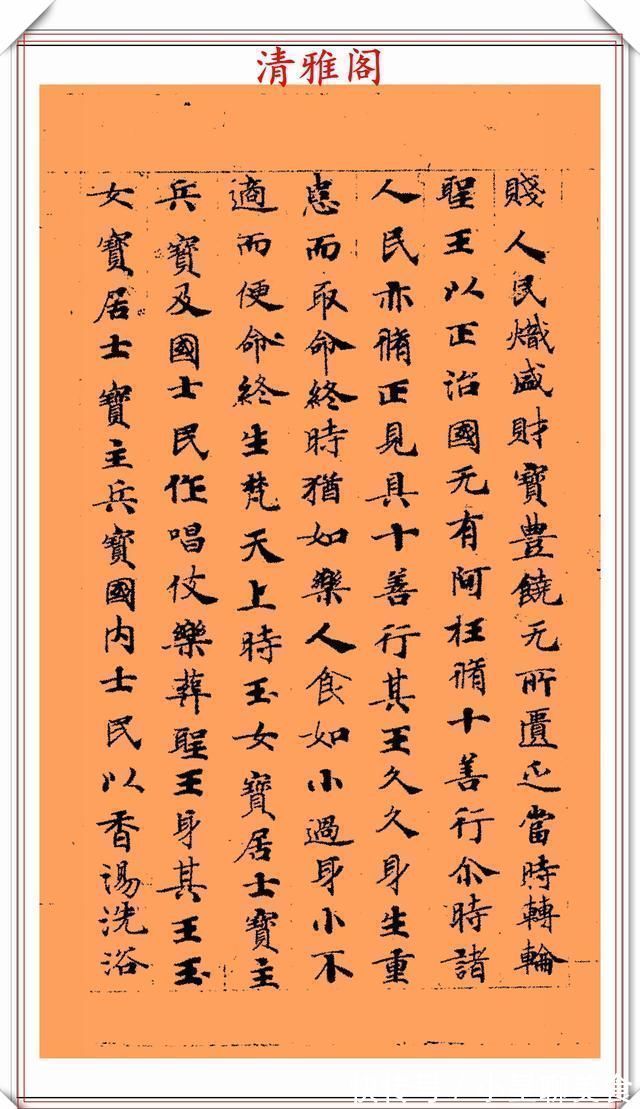 清雅阁
賤人民熾盛財寶豐饒无所遺乏當時轉輪
聖王以正治國无有阿枉脩十善行尒時諸
人民亦脩正見具十善行其王久久身生重
患而取命終時猶如樂人食如小過身小不
適而便命終生梵天上時玉女寶居士寶主
兵寶及國士民作唱伎樂葬聖王身其王玉
女寶居士寶主兵寶國内士民以香湯洗浴